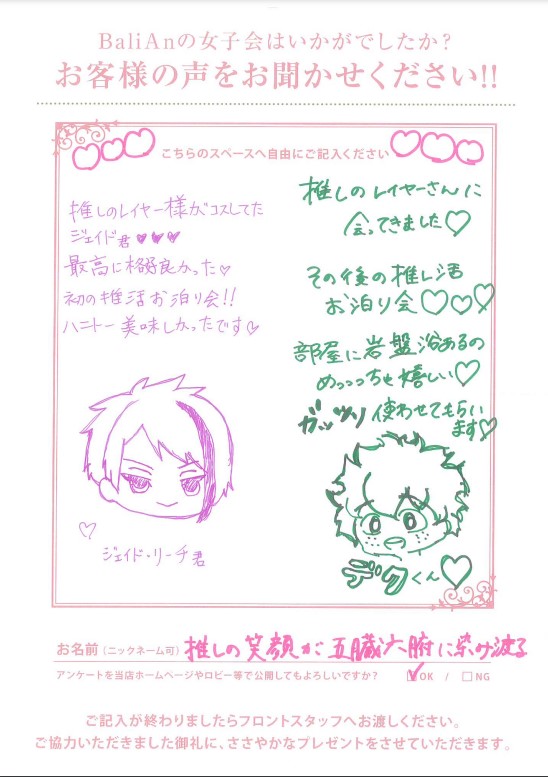 BaliAnの女子会はいかがでしたか?
お客様の声をお聞かせください!!
こちらのスペースへ自由にご記入ください
推しのレイヤー様がコスしてた
ジェイド君♥♥♥
最高に格好良かった♡
初の推活お泊り会!!
ハニトー美味しかったです♡
♡
ジェイド・リーチ君
推しのレイヤーさんに
会ってきました♡
その後の推し活
お泊り会♡♡♡
部屋に岩盤浴あるの
めっっっちゃ嬉しい♡
ガッツリ使わせてもらい
ます♡
デクくん♡
お名前(ニックネーム可) 推しの笑顔が五臓六腑に染み渡る
アンケートを当店ホームページやロビー等で公開してもよろしいですか? ☑OK / □NG
ご記入が終わりましたらフロントスタッフへお渡しください。
ご協力いただきました御礼に、ささやかなプレゼントをさせていただきます。